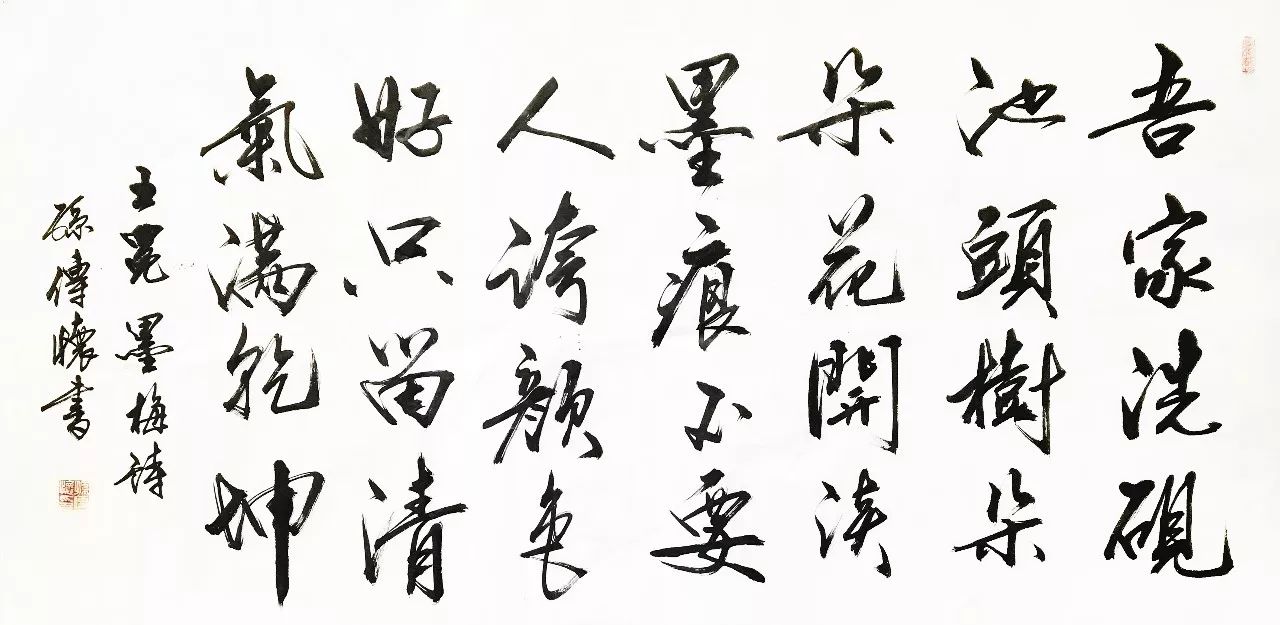 吾家洗硯
池頭樹朵
朵花開淡
墨痕不要
人誇顏色
好只留清
氣滿乾坤
王冕墨梅詩
孫傳懷書